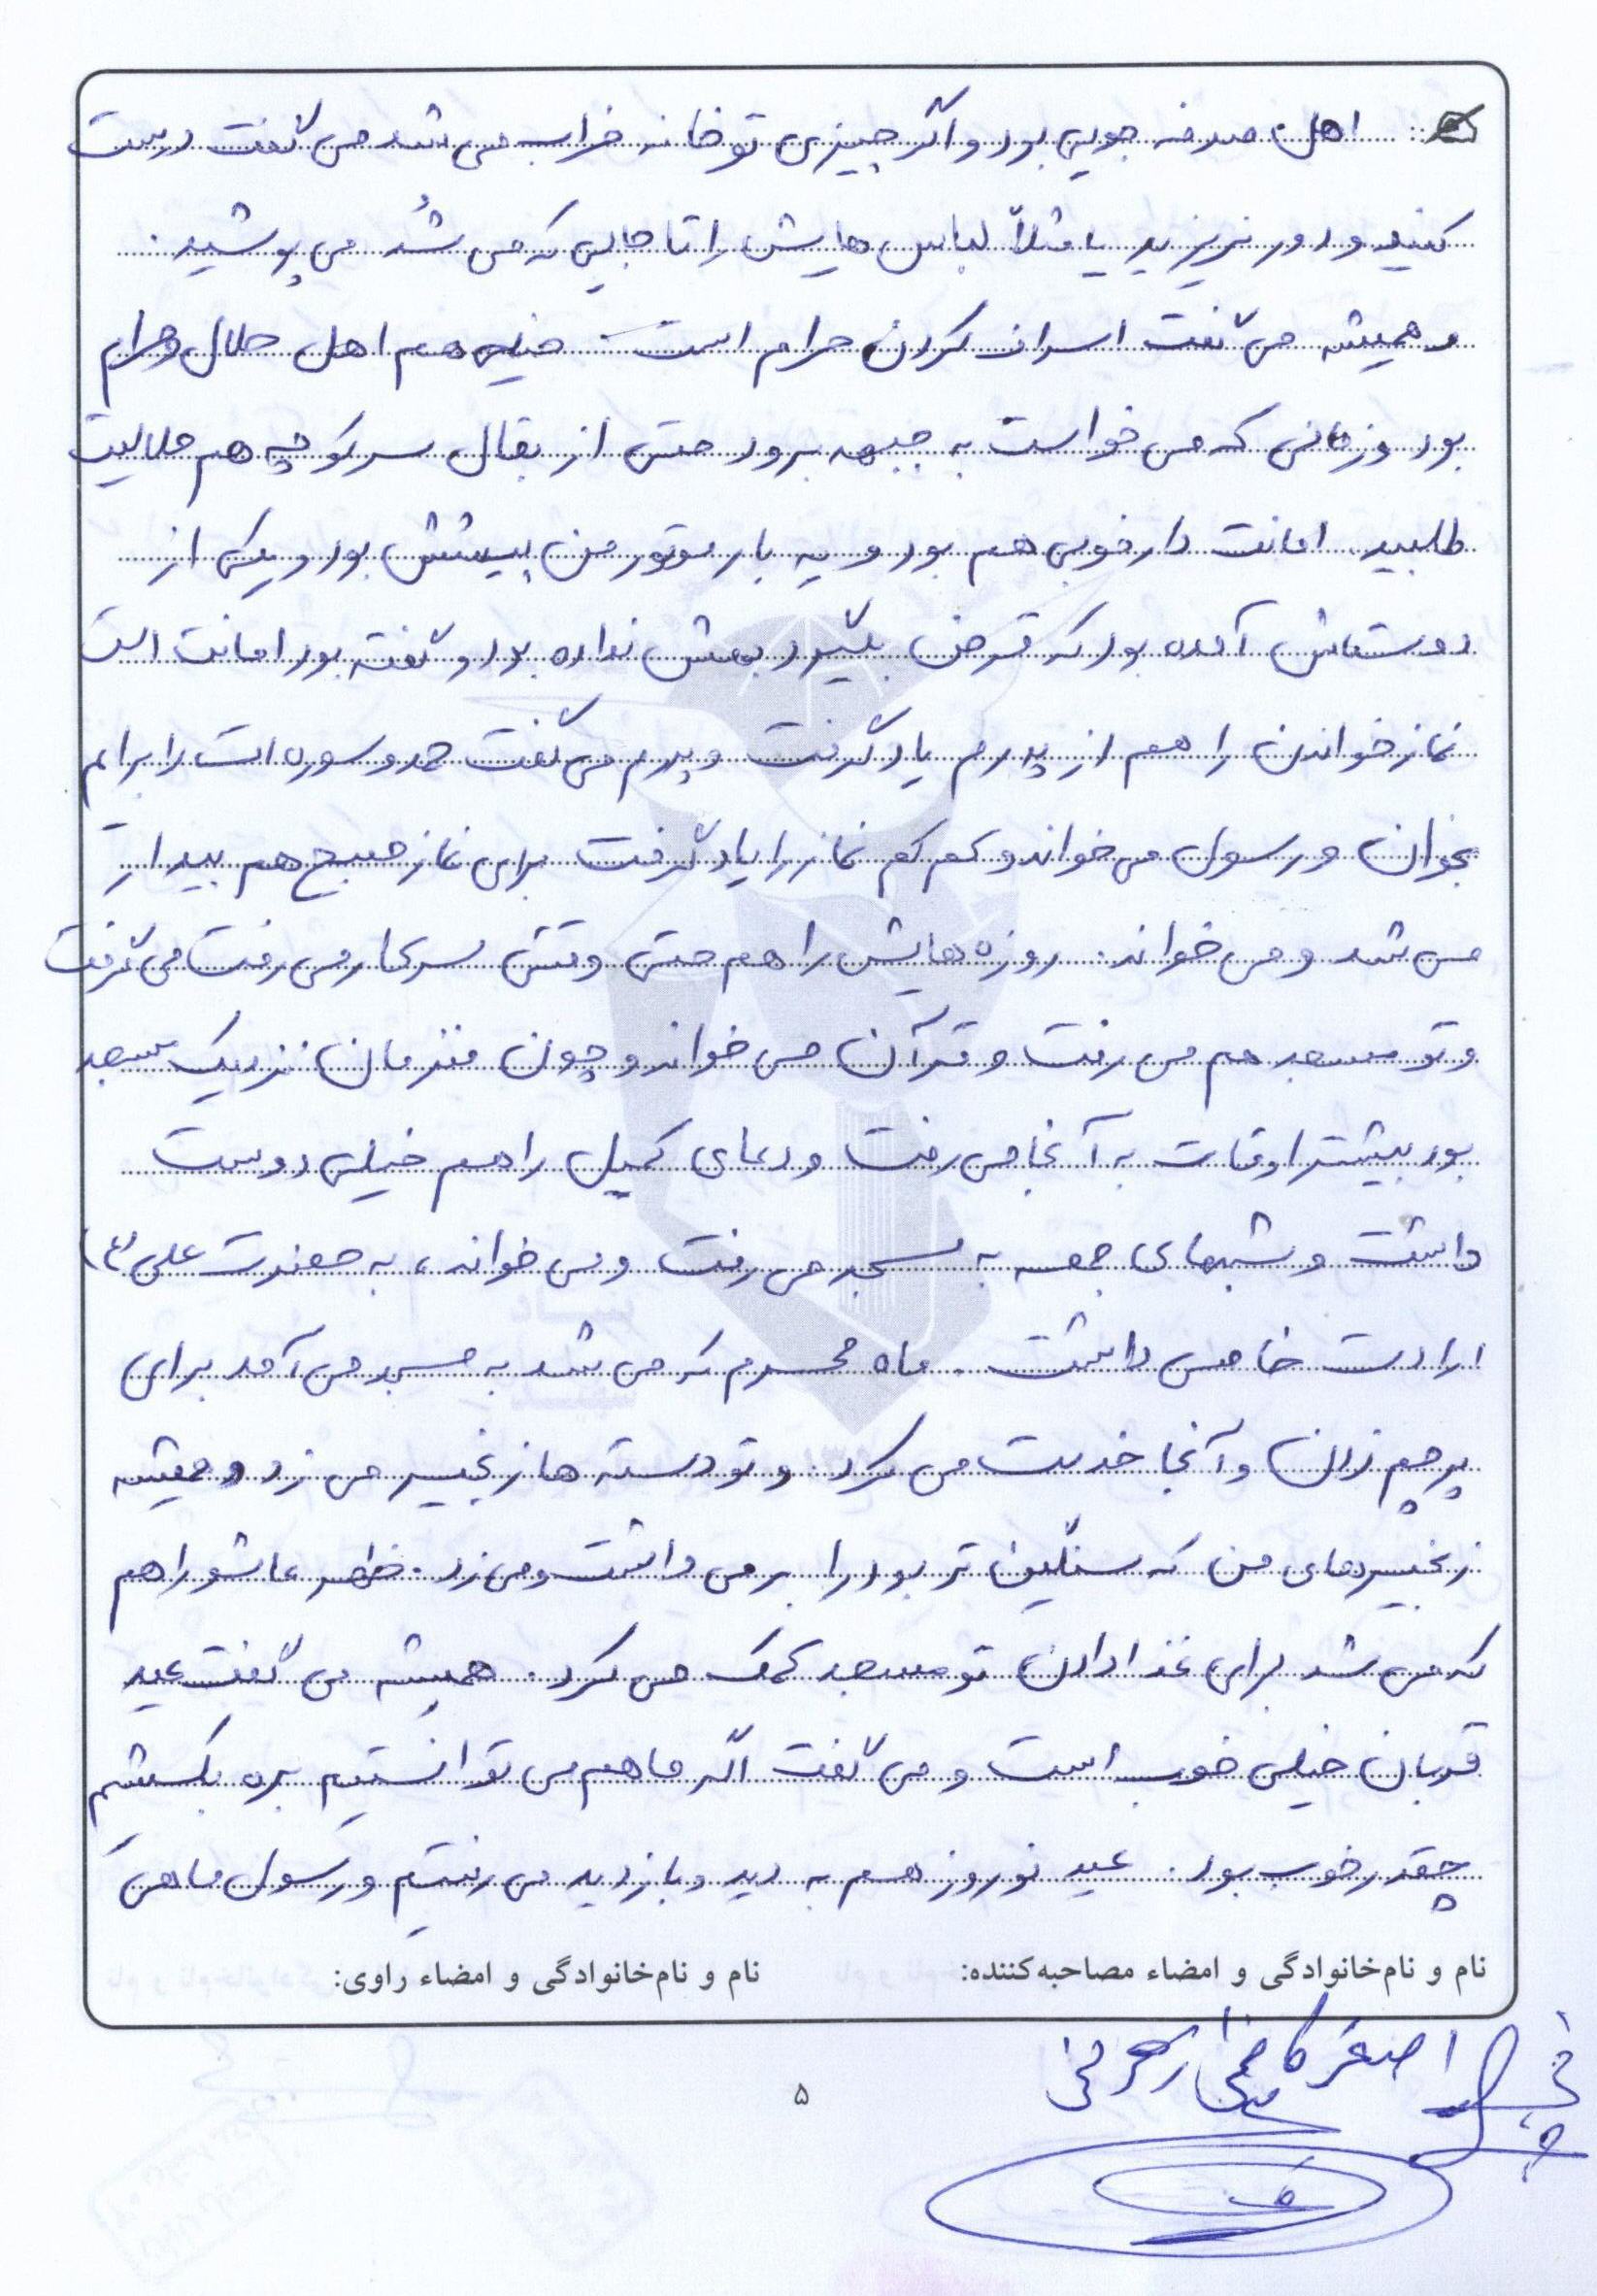 اهل صرفه جویی بود و اگر چیزی تو خانه خراب می شد می گفت درست
کنید و دور نریزید یا مثلاً لباس هایش را تا جایی که می شُد می پوشید.
و همیشه می گفت اسراف کردن حرام است. خیلی هم اهل حلال و حرام
بود و زمانی که می خواست به جبهه برود حتی از بقال سر کوچه هم حلالیت
طلبید. امانت دار خوبی هم بود و یه بار موتور من پیشش بود و یکی از
دوستاش آمده بود که قرض بگیرد بهش نداده بود و گفته بود امانت است
نماز خواندن را هم از پدرم یاد گرفت و پدرم می گفت حمد و سوره ات را برایم
بخوان و رسول می خواند و کم کم نماز را یاد گرفت برای نماز صبح هم بیدار
می شد و می خواند. روزه هایش را هم حتی وقتی سرکار می رفت می گرفت
و تو مسجد هم می رفت و قرآن می خواند و چون منزلمان نزدیک مسجد
بود بیشتر اوقات به آنجا می رفت و دعای کمیل را هم خیلی دوست
داشت و شبهای جمعه به مسجد می رفت و می خواند، به حضرت علی (ع)
ارادت خاصی داشت. ماه محرم که می شد به مسجد می آمد برای
پرچم زدن و آنجا خدمت می کرد. و تو دسته ها زنجیر می زد و همیشه
زنجیرهای من که سنگین تر بود را بر می داشت و می زد. ظهر عاشورا هم
که می شد برای غذا دادن تو مسجد کمک می کرد. همیشه می گفت عید
قربان خیلی خوب است و می گفت اگر ما هم می توانستیم بره بکشیم
چقدر خوب بود. عید نوروز هم به دید و بازدید می رفتیم و رسول ماهی
نام و نام‌خانوادگی و امضاء مصاحبه‌کننده: نام و نام‌خانوادگی و امضاء راوی:
اصغر
۵